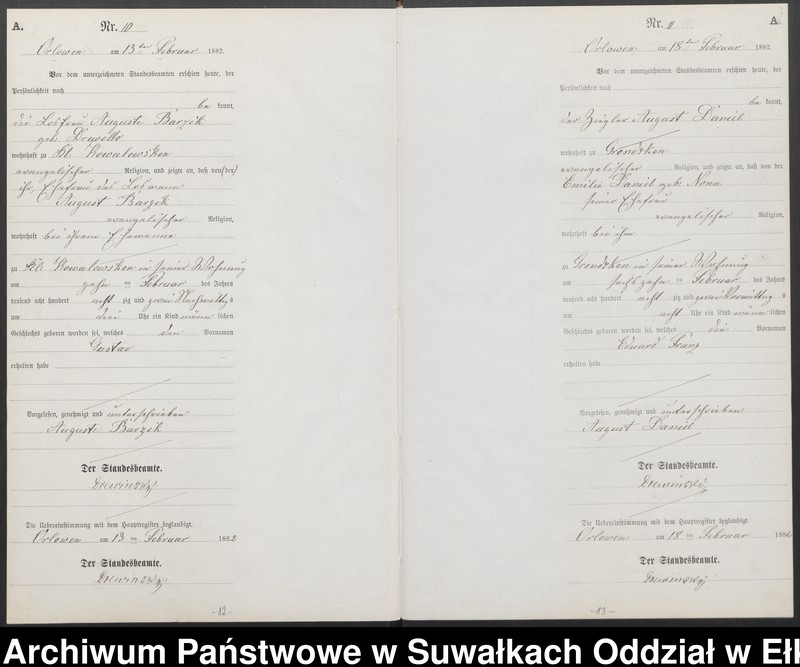 A.
Nr. 10
Orlowen am 13ten Februar 1882.
Vor dem unterzeichneten Standesbeamten erschien heute, der
Persönlichkeit nach
be kannt,
die Losfrau Auguste Barzik
geb.
wohnhaft zu Kl. Kowalewsken
evangelischer Religion, und zeigte an, daß von (der)
ihr, Ehefrau des Losmann
August Barzik
evangelischer Religion,
wohnhaft bei ihrem Ehemanne
zu Kl. Kowalewsken in seiner Wohnung
am zehn ten Februar des Jahres
tausend acht hundert acht zig und zwei Nachmittags
um drei Uhr ein Kind männ lichen
Geschlechts geboren worden sei, welches den Vornamen
Gustav
erhalten habe
Vorgelesen, genehmigt und unterschrieben
Auguste Barzik
Der Standesbeamte.
Drewinsky
Die Uebereinstimmung mit dem Hauptregister beglaubigt.
Orlowen am 13 ten Februar 1882
Der Standesbeamte.
Drewinsky
-12-
Nr. 11
A
Orlowen am 18ten Februar 1882.
Vor dem unterzeichneten Standesbeamten erschien heute, der
Persönlichkeit nach
be kannt,
der Ziegler August Daniel
wohnhaft zu Grondzken
evangelischer Religion, und zeigte an, daß von der
Emilie Daniel geb. Nona
seiner Ehefrau
evangelischer Religion,
wohnhaft bei ihm
zu Grondzken in seiner Wohnung
am sechszehn ten Februar des Jahres
tausend acht hundert acht zig und zwei Vormittags
um acht Uhr ein Kind männ lichen
Geschlechts geboren worden sei, welches die Vornamen
Eduard Franz
erhalten habe
Vorgelesen, genehmigt und unterschrieben
August Daniel
Der Standesbeamte.
Drewinsky
Die Uebereinstimmung mit dem Hauptregister beglaubigt.
Orlowen am 18 ten Februar 1882
Der Standesbeamte.
Drewinsky
-13-
Archiwum Państwowe w Suwałkach Oddział w Eł